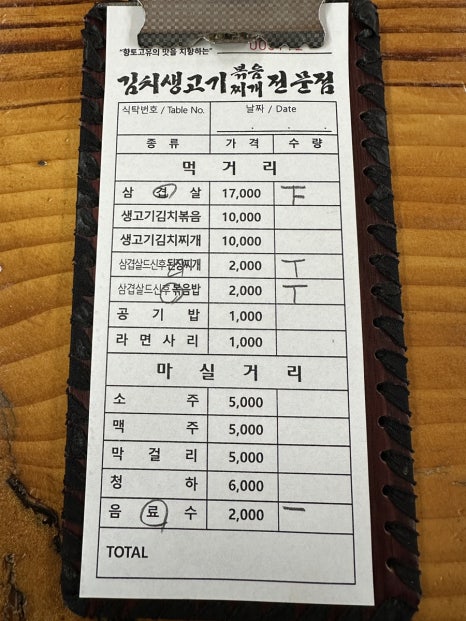 "향토고유의 맛을 지향하는"
김치생고기 볶음 찌개 전문점
식탁번호 / Table No. 날짜 / Date
종 류 가 격 수 량
먹 거 리
삼 겹 살 17,000
생고기김치볶음 10,000
생고기김치찌개 10,000
삼겹살드신후된장찌개 2,000
삼겹살드신후볶음밥 2,000
공 기 밥 1,000
라 면 사 리 1,000
마 실 거 리
소 주 5,000
맥 주 5,000
막 걸 리 5,000
청 하 6,000
음 료 수 2,000
TOTAL